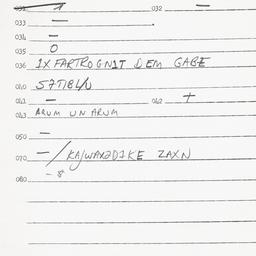 031 1 032 —
033 —
034 —
035 O
036 1X FARTROGNIT DEM GABE
040
041 — 042 +
043 ARUM UN ARUM
050 —
070 — / KAJWARZDIKE ZAXN
080 —